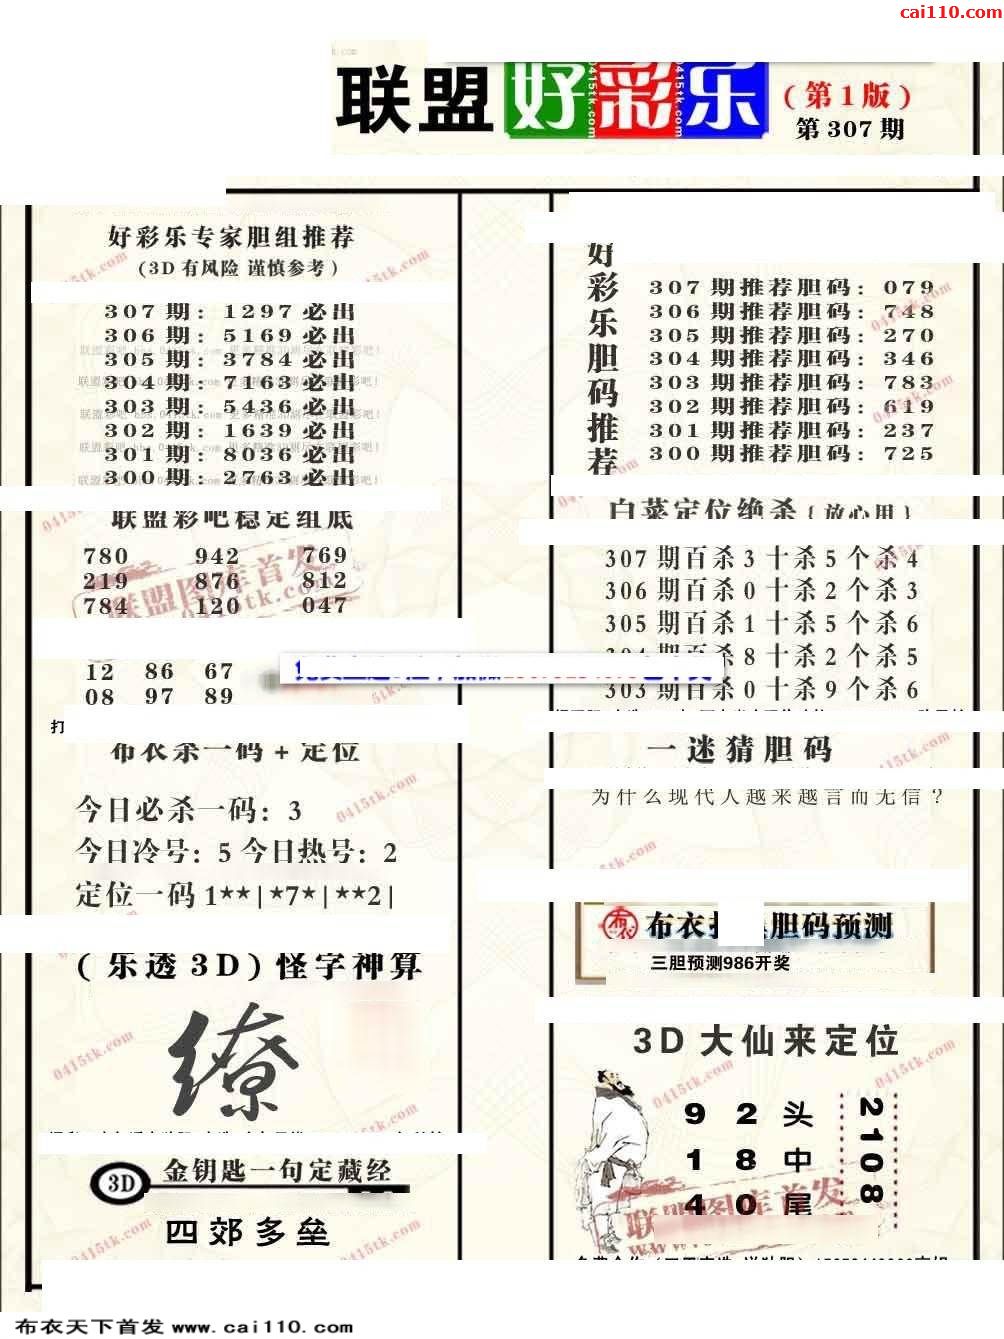 cai110.com
联盟好彩乐
(第1版)
第307期
好彩乐专家胆组推荐
(3D有风险 谨慎参考)
307期: 1297必出
306期: 5169必出
305期: 3784必出
304期: 7163必出
303期: 5436必出
302期: 1639必出
301期: 8036必出
300期: 2763必出
联盟彩吧稳定组底
780 942 769
219 876 812
784 120 047
12 86 67
08 97 89
打
布衣杀一码+定位
今日必杀一码: 3
今日冷号: 5 今日热号: 2
定位一码1**|*7*|**2|
(乐透3D)怪字神算
缭
3D 金钥匙一句定藏经
四郊多垒
好彩乐胆码推荐
307期推荐胆码: 079
306期推荐胆码: 748
305期推荐胆码: 270
304期推荐胆码: 346
303期推荐胆码: 783
302期推荐胆码: 619
301期推荐胆码: 237
300期推荐胆码: 725
白菜定位绝杀{放心用}
307期百杀3十杀5个杀4
306期百杀0十杀2个杀3
305期百杀1十杀5个杀6
304期百杀8十杀2个杀5
303期百杀0十杀9个杀6
一迷猜胆码
为什么现代人越来越言而无信?
布衣 布衣 胆码预测
三胆预测986开奖
3D大仙来定位
9 2 头
1 8 中
4 0 尾
2108
联盟图库首发
0415tk.com
布衣天下首发 www.cai110.com